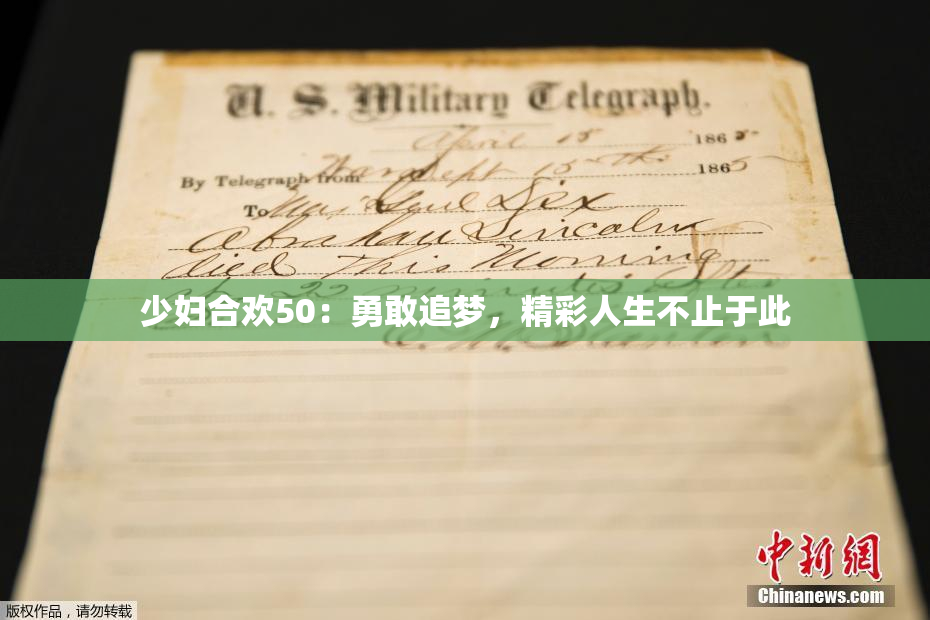 U. S. Military Telegraph.
April 15 1865
By Telegraph from War Dept 15th 1865
To Maj Genl Dix
Abraham Lincoln
died This Morning
at 22 minutes after
少妇合欢50：勇敢追梦，精彩人生不止于此
E. M. Stanton
中新网
Chinanews.com
版权作品，请勿转载